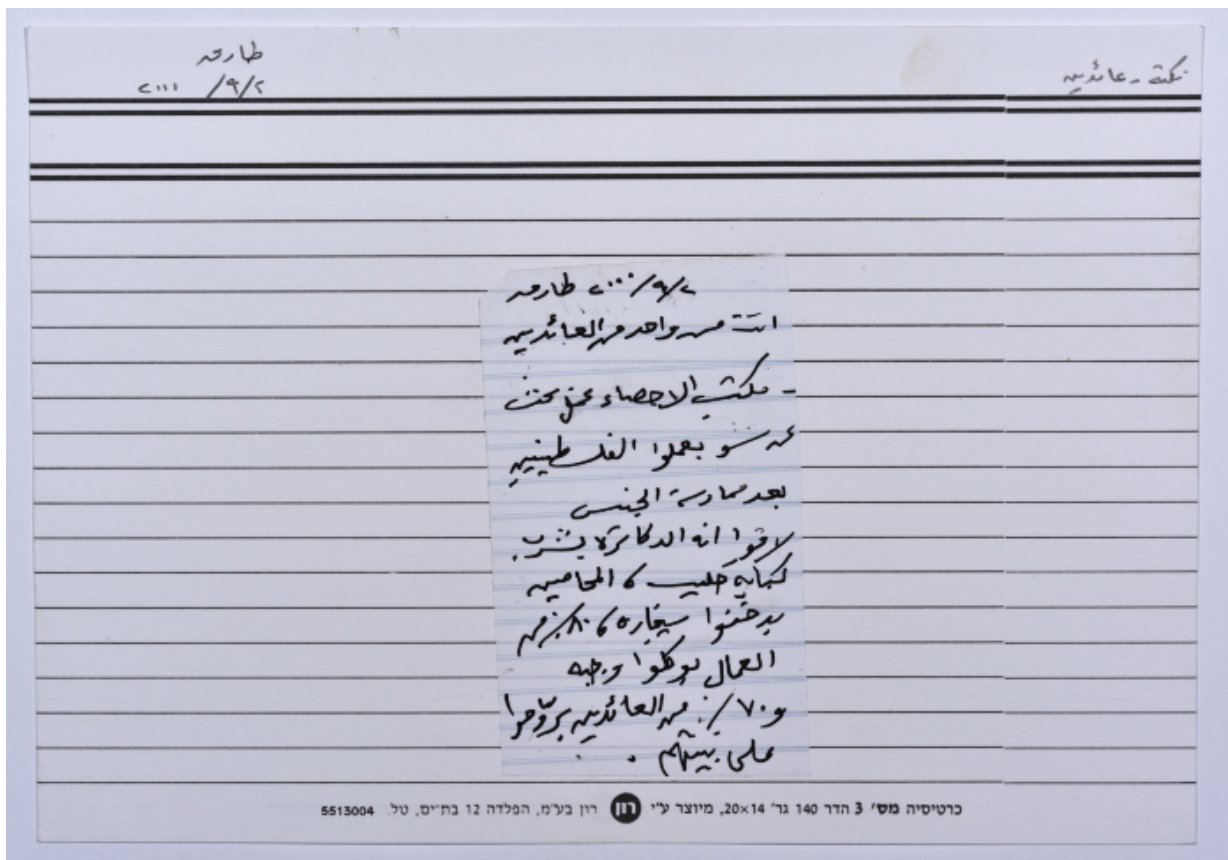 نكتة - عائدين
طارق
٢/٩/٢٠٠٠
٢/٩/٢٠٠٠ طارق
انت من واحد من العائدين
- مكتب الاحصاء عمل بحث
عن شو بعملوا الفلسطينيين
بعد ممارسة الجنس
لاقوا انه الدكاترة بشربوا
كباية حليب، المحاميين
بدخنوا سيجارة، ٨٠٪ من
العمال بوكلوا وجبه
و ٧٠٪ من العائدين بروّحوا
على بيتهم.
כרטיסיה מס' 3 הדר 140 גר' 20×14, מיוצר ע"י רון רון בע"מ, הפלדה 12 בת-ים, טל. 5513004